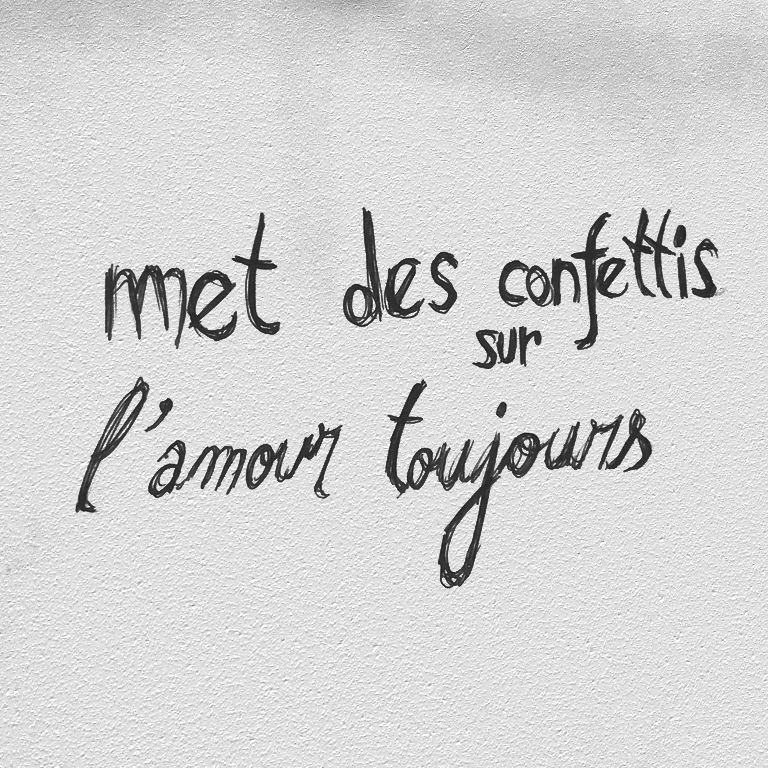 met des confettis
sur
l'amour toujours